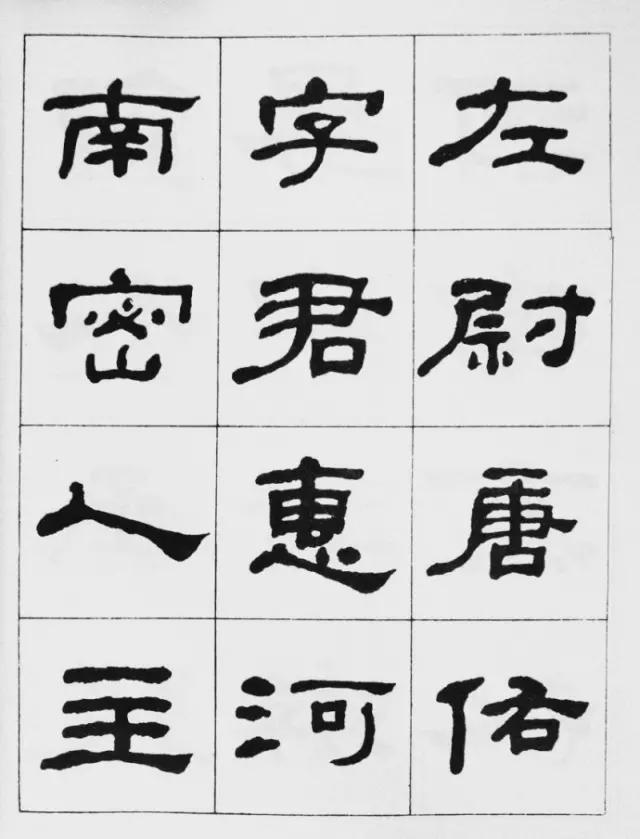 左尉唐佑
字君惠河
南密人主